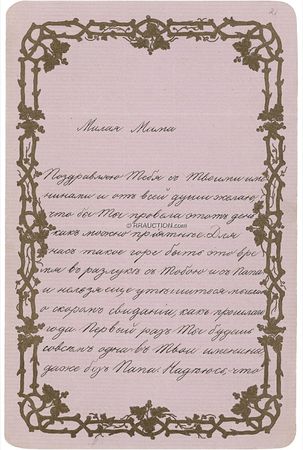 Милая Мама
© RRAUCTION.COM
Поздравляю Тебя съ Твоими име
нинами и отъ всей души желаю,
что бы Ты провела этотъ день
какъ можно прiятнѣе. Для
насъ такое горе быть это вре
мя въ разлукѣ съ Тобою и съ Папа
и нельзя еще утѣшиться мыслью
о скоромъ свиданiи, какъ прошлые
года. Первый разъ Ты будешь
совсѣмъ одна въ Твои именины
даже безъ Папа. Надѣюсь, что